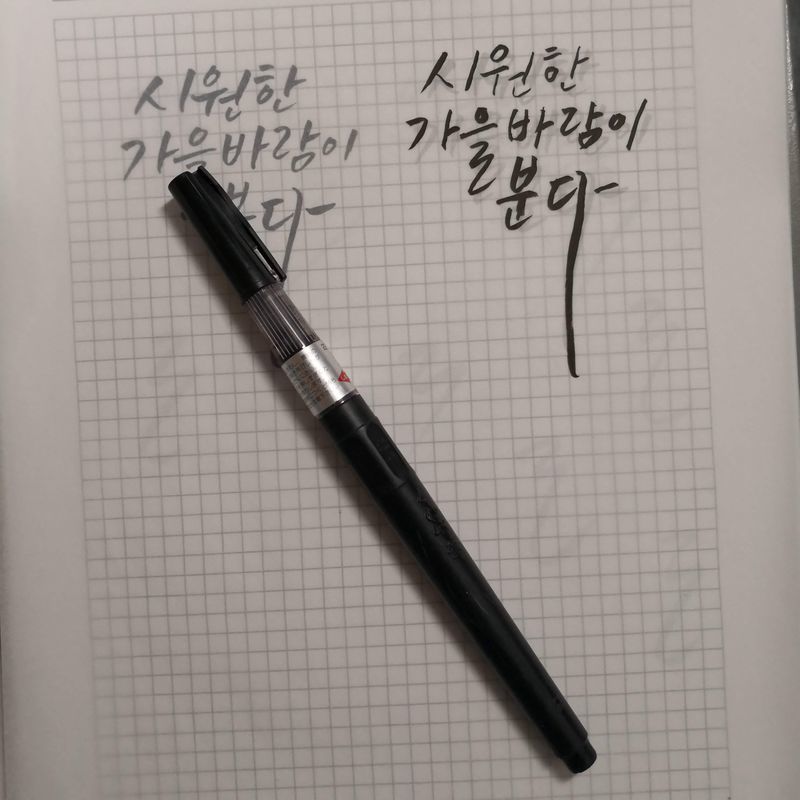 시원한
가을바람이
분다
시원한
가을바람이
분다